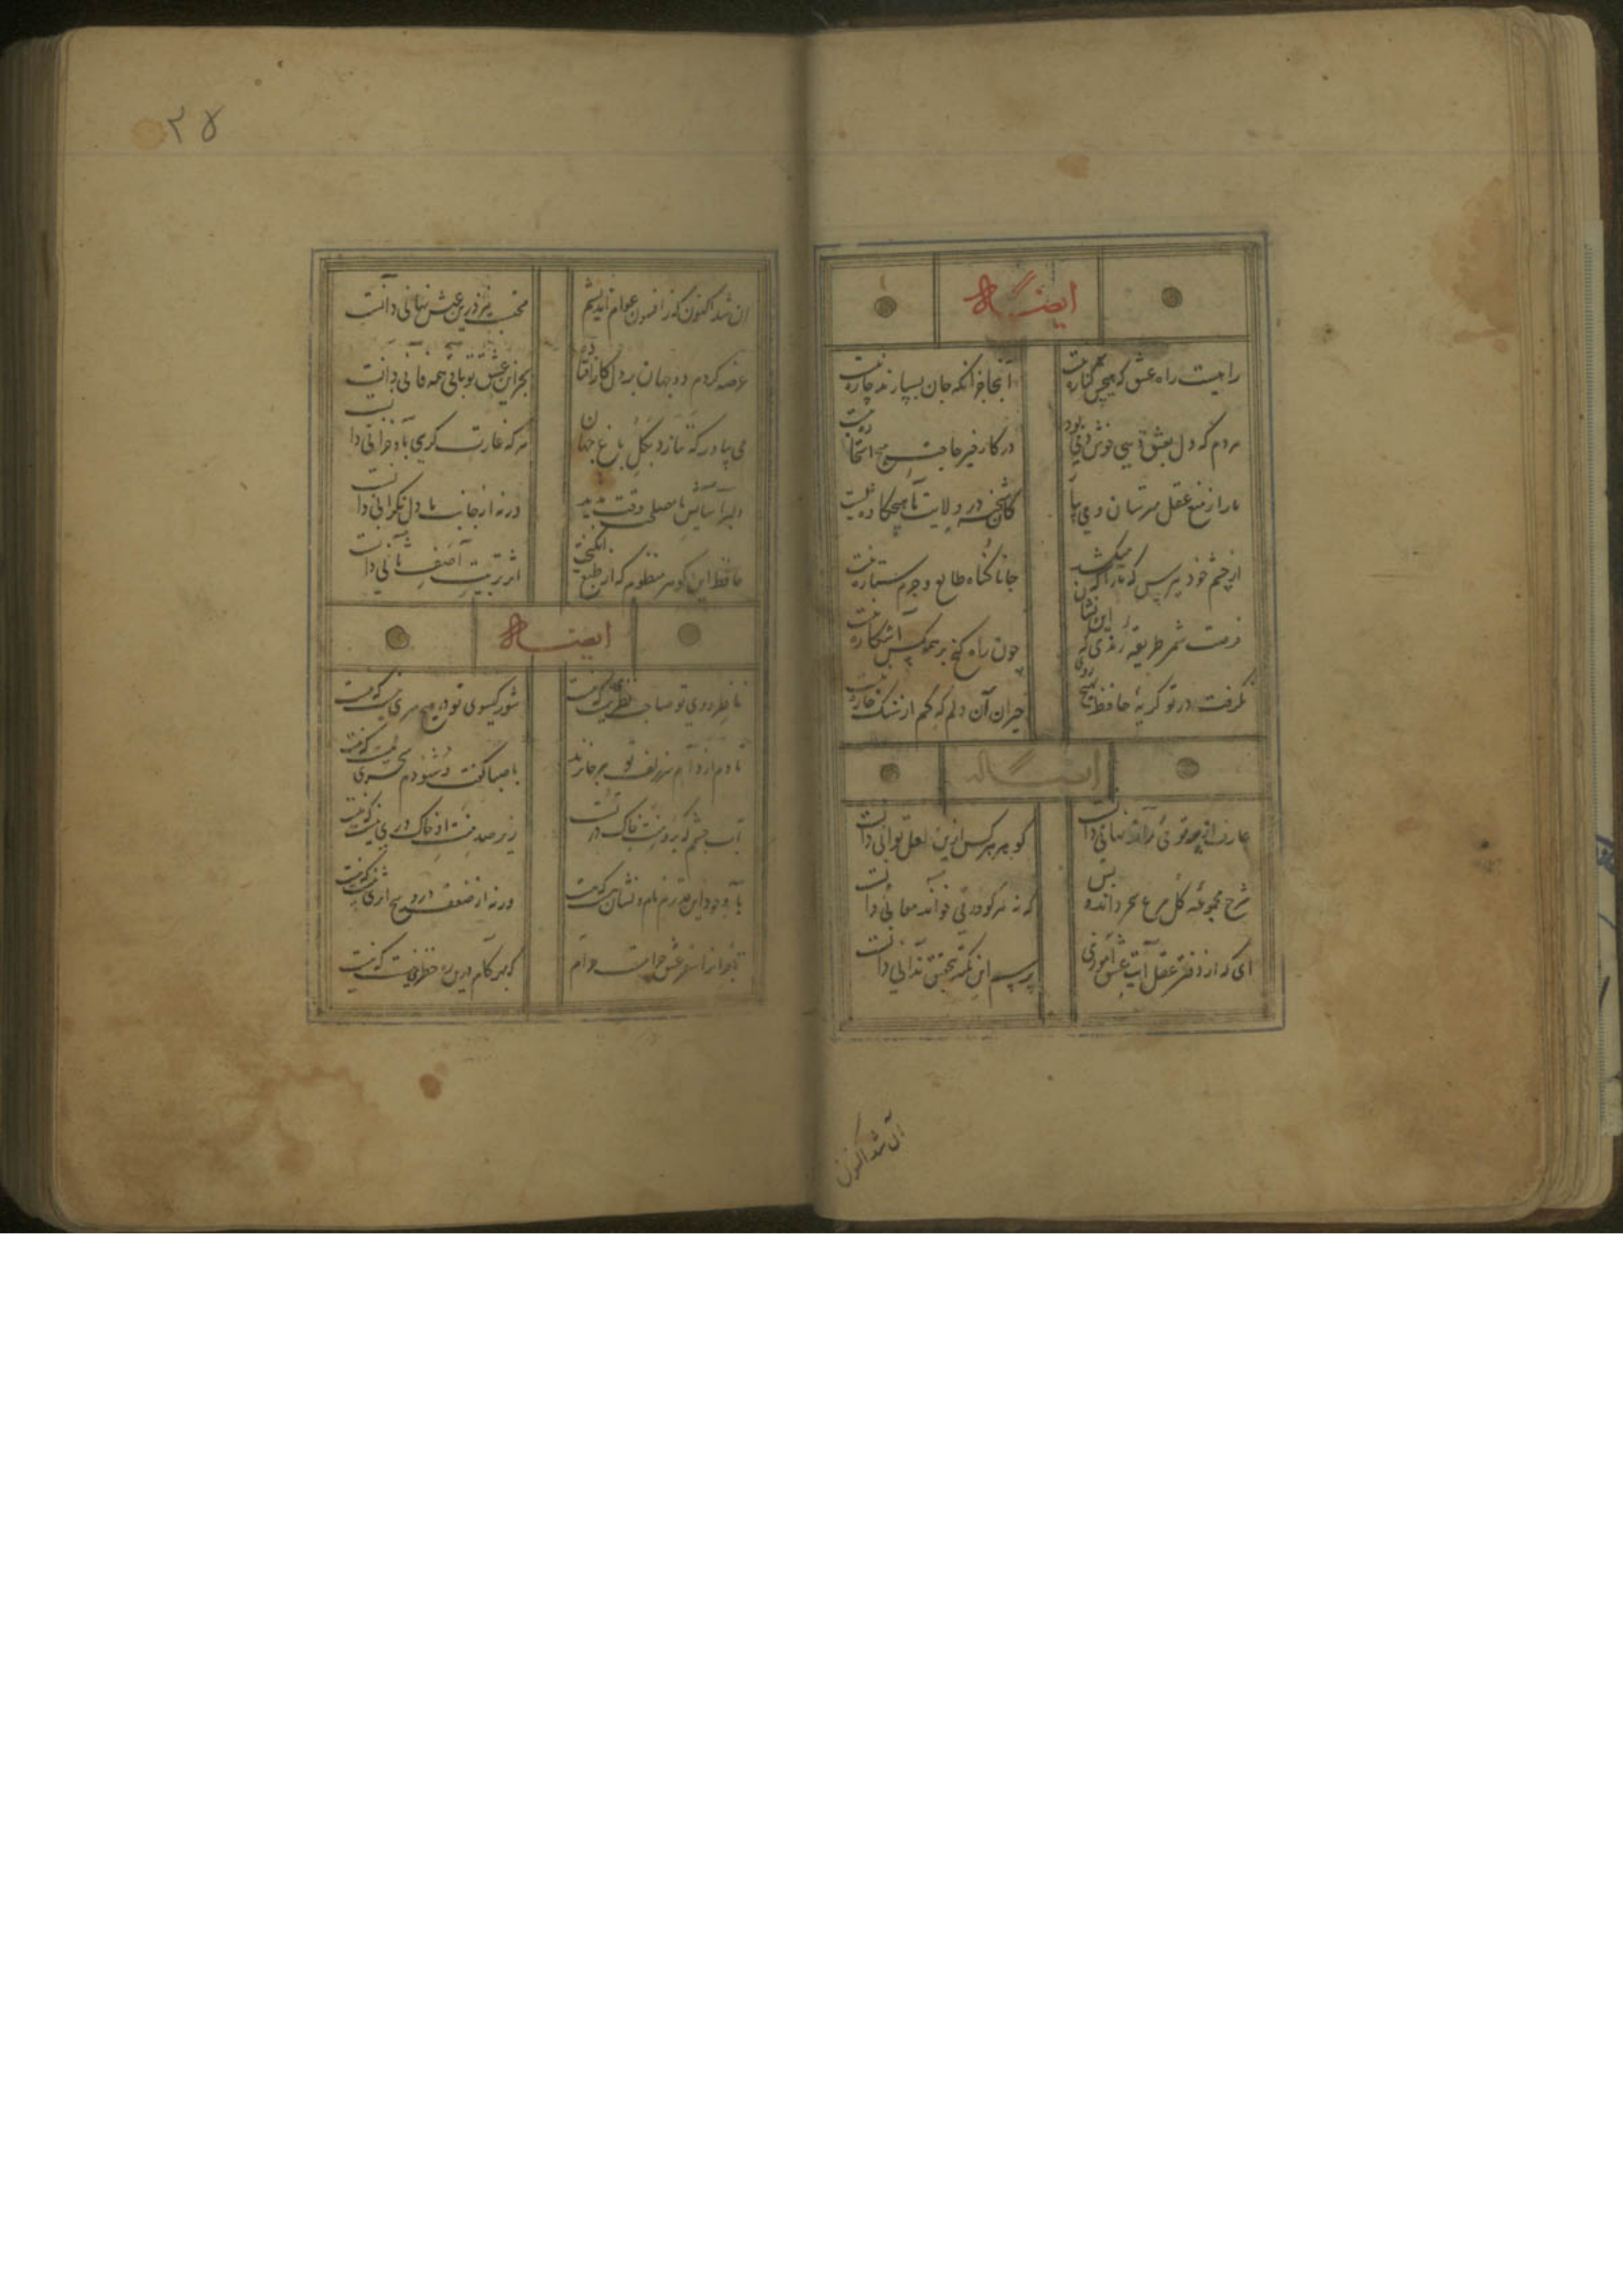 ایضاً له
راهیست راه عشق که هیچش کناره نیست
آنجا جز آنکه جان بسپارند چاره نیست
هر دم که دل بعشق دهی خوش دمی بود
در کار خیر حاجت هیچ استخاره نیست
ما را ز منع عقل مترسان و می بیار
کان شحنه در ولایت ما هیچکاره نیست
از چشم خود بپرس که ما را که میکشد
جانا گناه طالع و جرم ستاره نیست
فرصت شمر طریقه رندی که این نشان
چون راه گنج بر همه کس آشکاره نیست
نگرفت در تو گریه حافظ بهیچ روی
حیران آن دلم که کم از سنگ خاره نیست
ایضاً له
عارف از پرتو می راز نهانی دانست
گوهر هر کس ازین لعل توانی دانست
شرح مجموعه گل مرغ سحر داند و بس
که نه هر کو ورقی خواند معانی دانست
ای که از دفتر عقل آیت عشق آموزی
ترسم این نکته بتحقیق ندانی دانست
آن شد اکنون
۲۵
آن شد اکنون که ز افسون عوام اندیشم
محتسب نیز درین عیش نهانی دانست
عرضه کردم دو جهان بر دل کار افتاده
بجز از عشق تو باقی همه فانی دانست
می بیاور که ننازد بگل باغ جهان
هر که غارت گری باد خزانی دانست
دلبر آسایش ما مصلحت وقت ندید
ورنه از جانب ما دل نگرانی دانست
حافظ این گوهر منظوم که از طبع انگیخت
اثر تربیت آصف ثانی دانست
ایضاً له
ناظر روی تو صاحب نظریست که نیست
شور گیسوی تو در هیچ سری نیست که نیست
تا دم از دام سر زلف تو هر جا نزند
با صبا گفت و شنودم سحری نیست که نیست
آب چشمم که برو منت خاک در تست
زیر صد منت او خاک دری نیست که نیست
با وجود این قدرم نام و نشان هست که هست
ورنه از ضعف درو هیچ اثری نیست که نیست
تا بهر گام درین ره خطری نیست که نیست